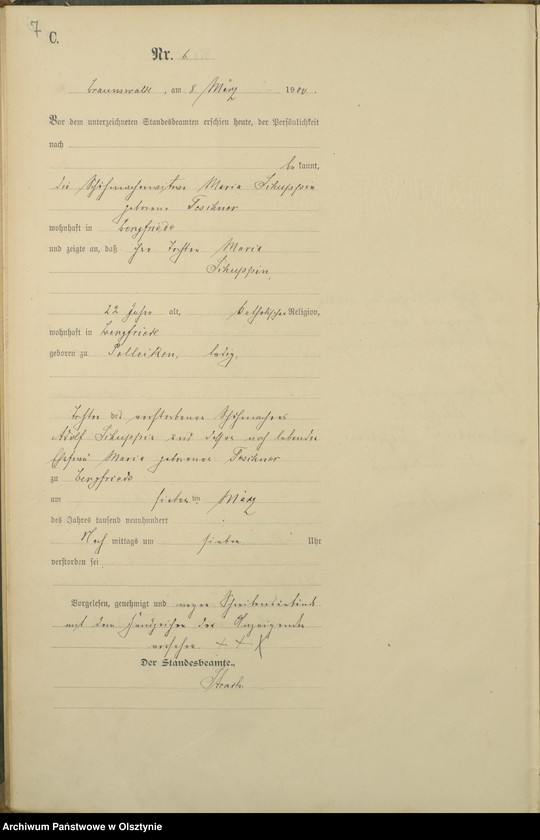 7
C.
Nr. 6
Braunswalde, am 8 März 1900.
Vor dem unterzeichneten Standesbeamten erschien heute, der Persönlichkeit
nach
bekannt,
die Schuhmacherwittwe Maria
geborene Teschner
wohnhaft in Bergfriede
und zeigte an, daß ihre Tochter Maria
22 Jahre alt, katholischer Religion,
wohnhaft in Bergfriede
geboren zu Polleiken, ledig,
Tochter des verstorbenen Schuhmachers
Adolf und dessen noch lebenden
Ehefrau Maria geborene Teschner
zu Bergfriede
am sieben ten März
des Jahres tausend neunhundert
Nach mittags um sieben Uhr
verstorben sei
Vorgelesen, genehmigt und wegen
mit dem Handzeichen der Anzeigenden
versehen + + X
Der Standesbeamte.
Archiwum Państwowe w Olsztynie